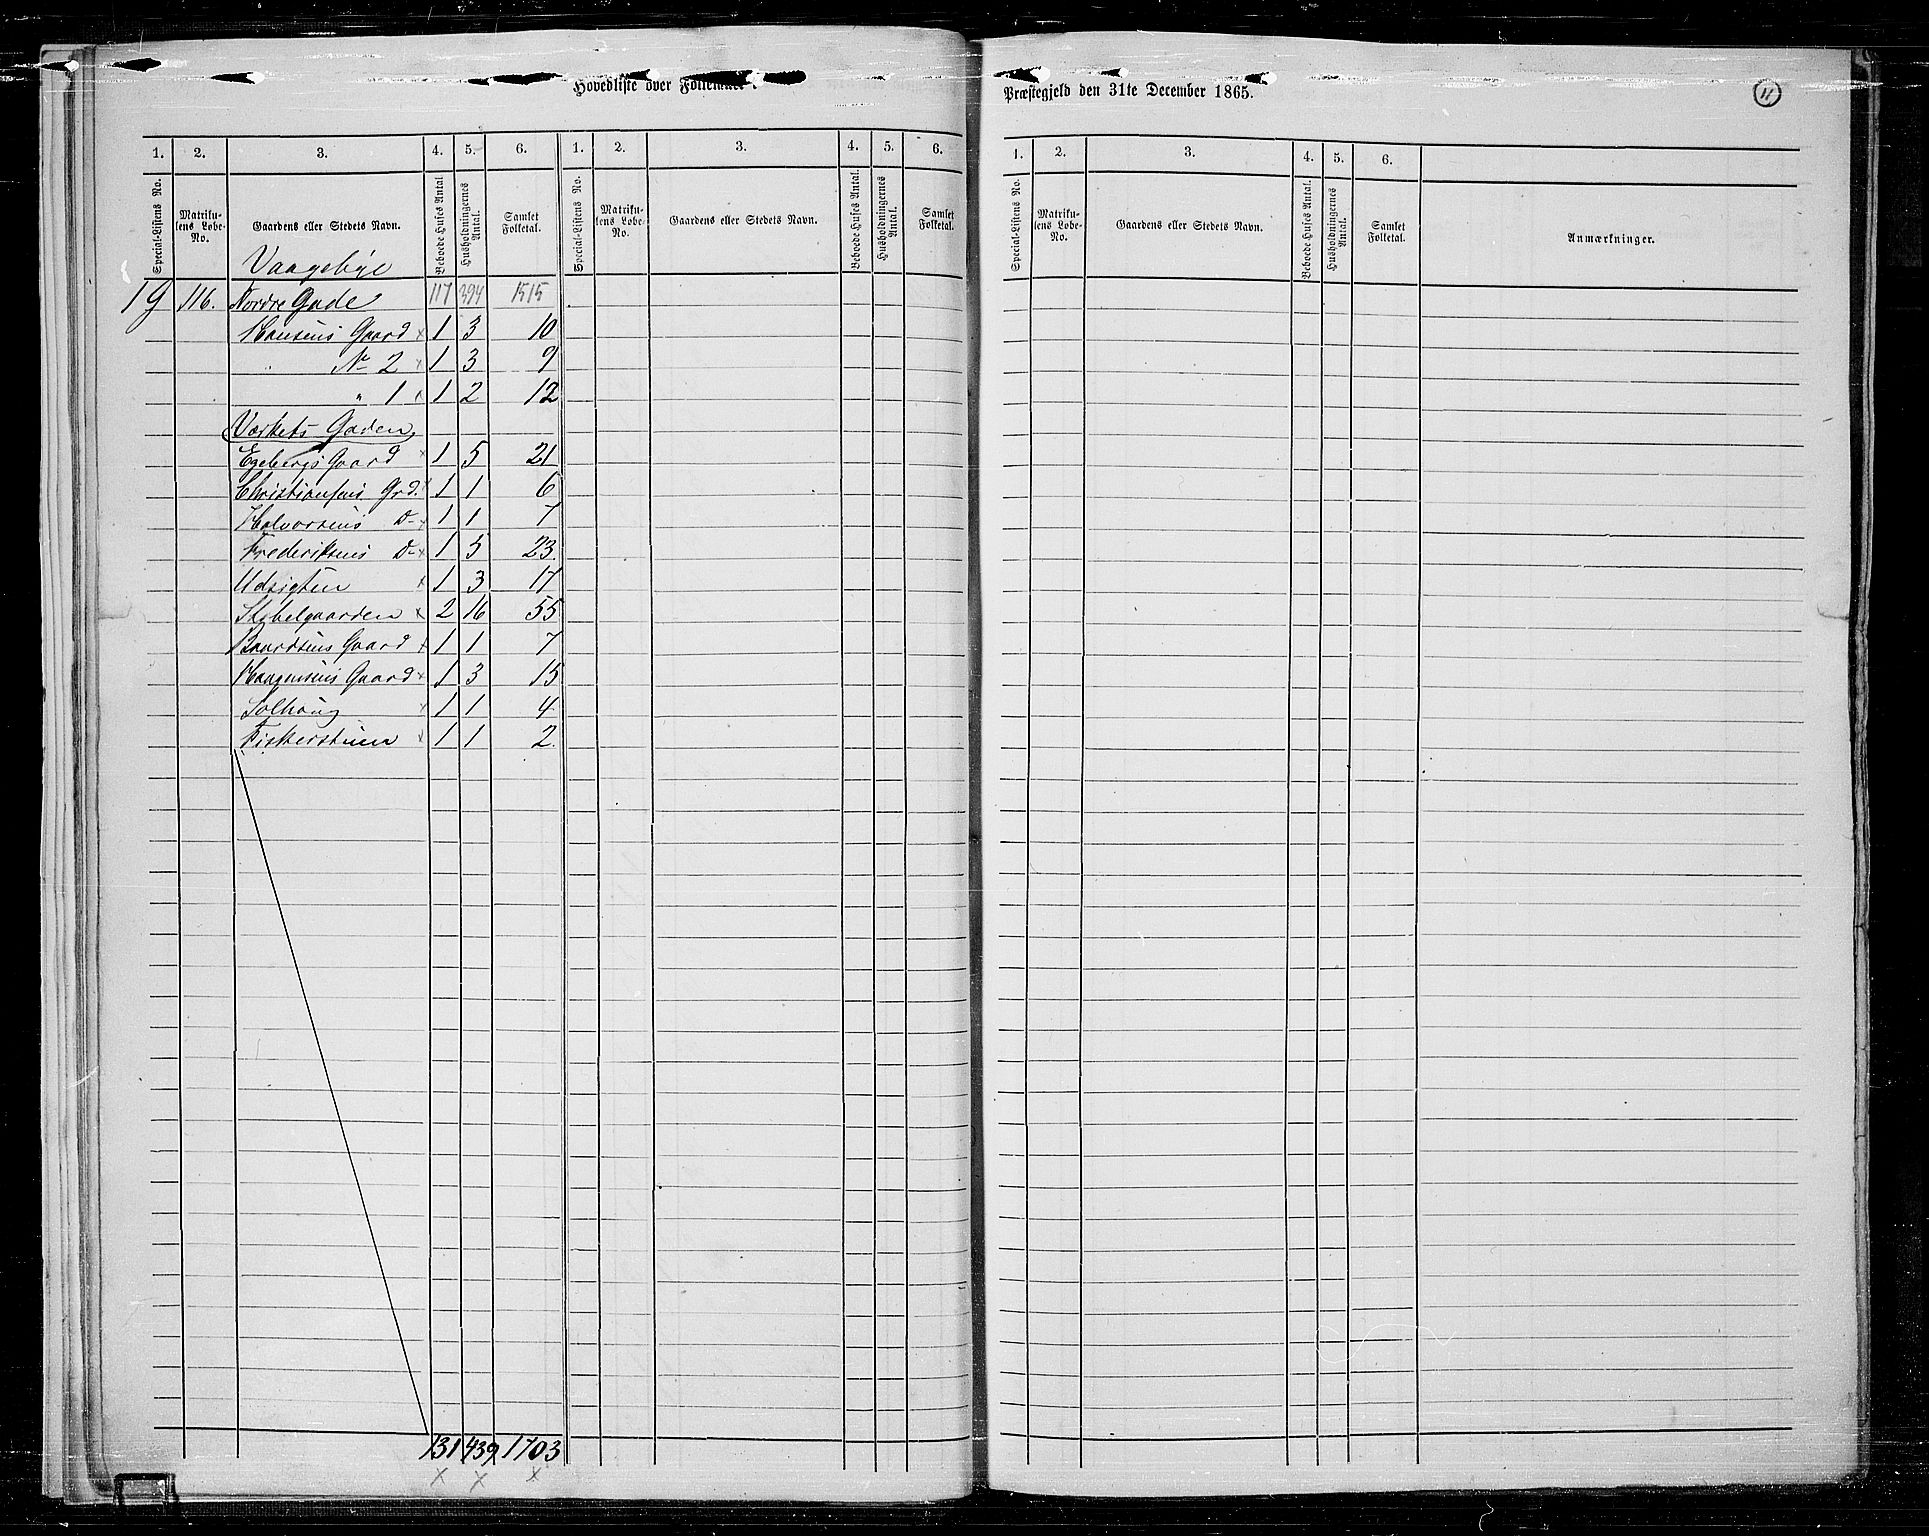 Hovedliste over Folkemæ
Præstegjeld den 31te December 1865.
11
1. 2. 3. 4. 5. 6. 1. 2. 3. 4. 5. 6. 1. 2. 3. 4. 5. 6.
Special-Listens No. Matrikulens Løbe-No. Gaardens eller Stedets Navn. Beboede Huses Antal Husholdningernes Antal. Samlet Folketal. Special-Listens No. Matrikulens Løbe-No. Gaardens eller Stedets Navn. Beboede Huses Antal. Husholdningernes Antal. Samlet Folketal. Special-Listens No. Matrikulens Løbe-No. Gaardens eller Stedets Navn. Beboede Huses Antal. Husholdningernes Antal. Samlet Folketal. Anmærkninger.
Vaagebye
19 116. Nordre Gade 117 394 1515
Hansens Gaard x 1 3 10
No 2 x 1 3 9
" 1 x 1 2 12
Værkets Gaden
Egebergs Gaard x 1 5 21
Christiansens Grd. x 1 1 6
Halvorsens Do x 1 1 7
Frederiksens Do x 1 5 23
Udsigten x 1 3 17
Stabelgaarden x 2 16 55
Baardsens Gaard x 1 1 7
Haagensens Gaard x 1 3 15
Solhaug x 1 1 4
Fiskerstuen x 1 1 2
131 439 1703
x x x